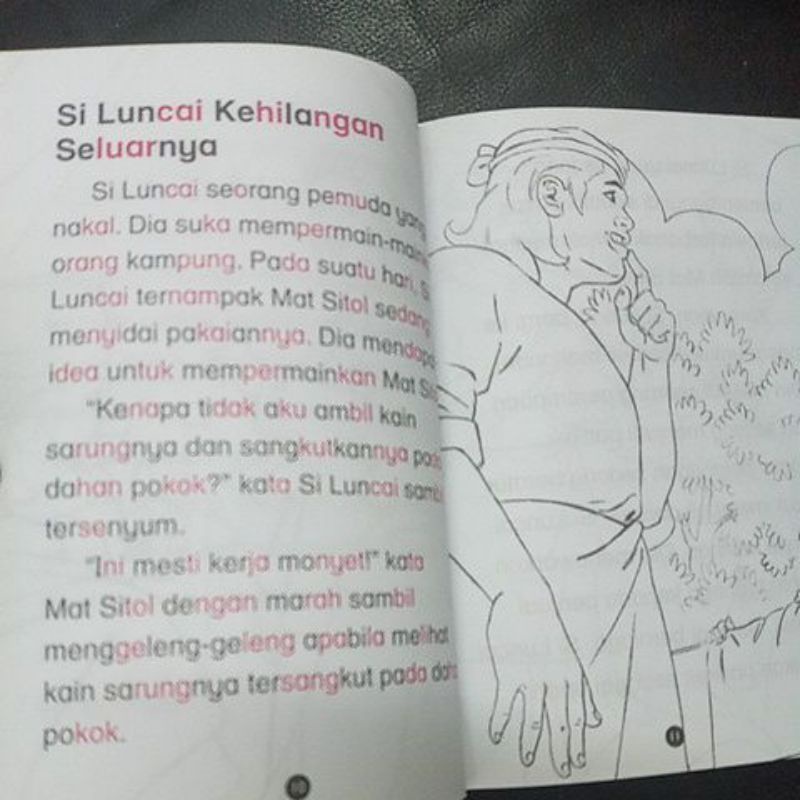 Si Luncai Kehilangan
Seluarnya
Si Luncai seorang pemuda yang
nakal. Dia suka mempermain-main
orang kampung. Pada suatu hari, Si
Luncai ternampak Mat Sitol sedang
menyidai pakaiannya. Dia mendapat
idea untuk mempermainkan Mat
"Kenapa tidak aku ambil kain
sarungnya dan sangkutkannya pada
dahan pokok?" kata Si Luncai sambil
tersenyum.
"Ini mesti kerja monyet!" kata
Mat Sitol dengan marah sambil
menggeleng-geleng apabila melihat
kain sarungnya tersangkut pada dahan
pokok.
10
11